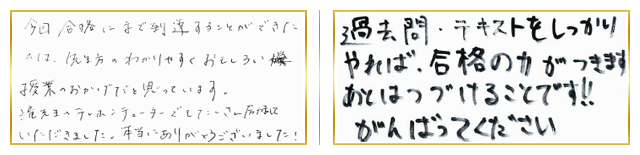 今回合格にまで到達することができた
のは、先生方のわかりやすくおもしろい
授業のおかげだと思っています。
いただきました。本当にありがとうございました!
過去問・テキストをしっかり
やれば、合格の力がつきます
あとはつづけることです!!
がんばってください